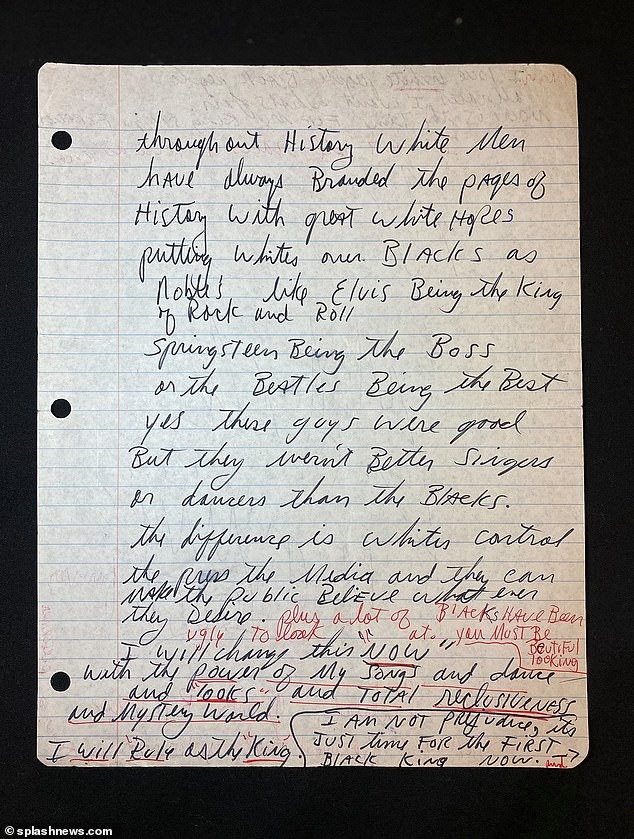 throughout History white Men
have always Branded the pages of
History with great white Hopes
putting whites over BLACKS as
Nobles like Elvis Being the King
of Rock and Roll
Springsteen Being the Boss
or the BEATLES Being the Best
yes these guys were good
But they wern't Better Singers
or dancers than the BlAcks.
the difference is whites control
the press the Media and they can
MAKE the public BeliEve what ever
they Desire. plus a lot of BlAcks HAVE BEEN
ugly to look at. you MUST BE
BEUTIFUL
looking
I will change this "NOW"
with the power of My Songs and dance
and "looks" and TOTAL reclusiveness
and Mystery World.
I will Rule as the King.
I AM NOT prejudice, its
JUST time FOR the FIRST
BLACK King NOW.
splashnews.com